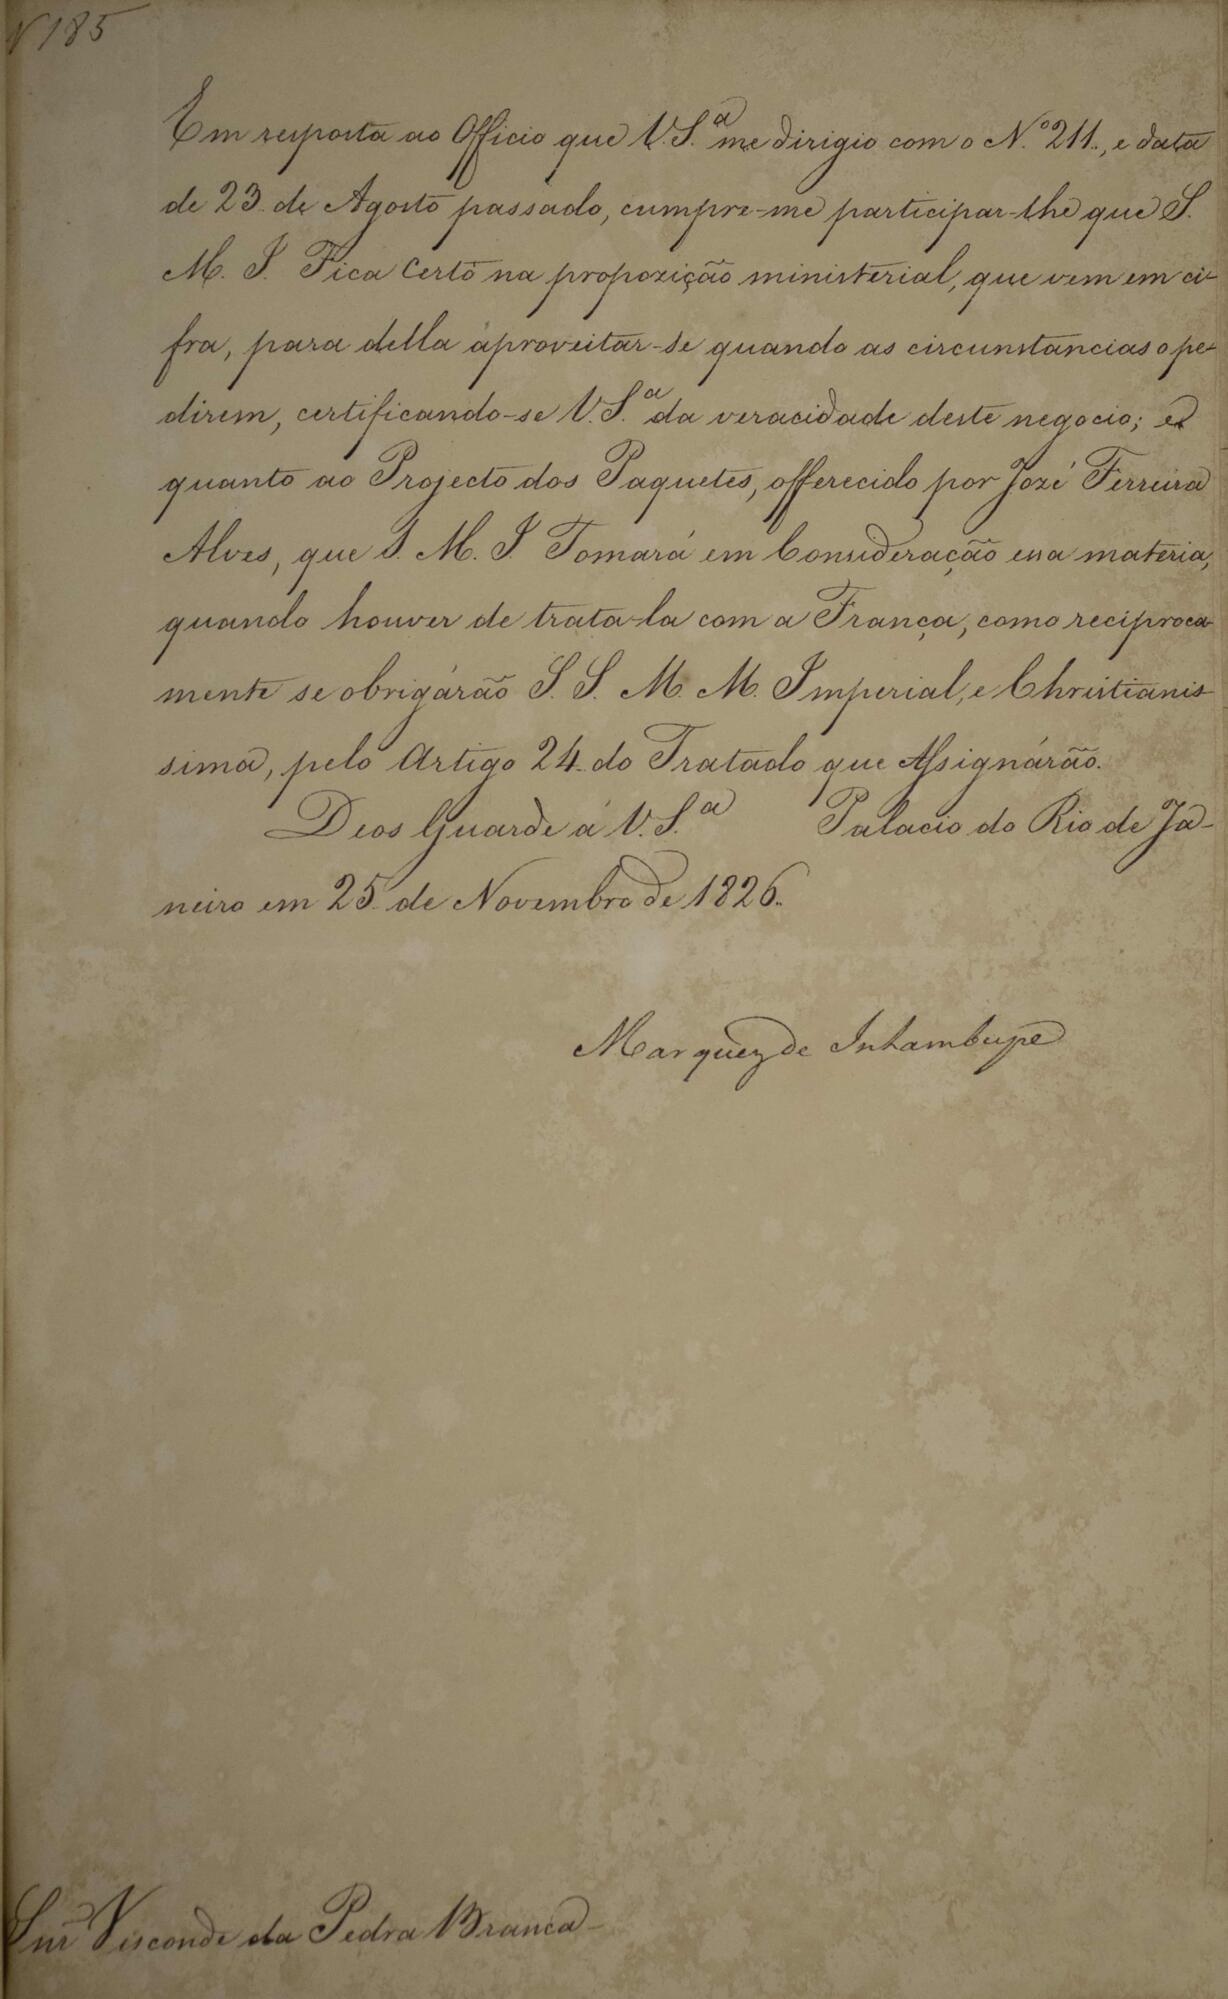 N 185
Em resposta ao Officio que V. S.ª me dirigio com o N.º 211., e data
de 23. de Agosto passado, cumpre-me participar-lhe que S.
M. I. Fica Certo na propozição ministerial, que vem em ci-
fra, para della aproveitar-se quando as circunstancias o pe-
direm, certificando-se V. S.ª da veracidade deste negocio; e
quanto ao Projecto dos Paquetes, offerecido por Jozé Ferreira
Alves, que S. M. I. Tomará em Consideração essa materia,
quando houver de trata-la com a França, como reciproca-
mente se obrigárão S. S. M. M. Imperial, e Christianis-
sima, pelo Artigo 24. do Tratado que Assignárão.
Deos Guarde á V. S.ª Palacio do Rio de Ja-
neiro em 25. de Novembro de 1826.
Marquez de Inhambupe
Snr. Visconde da Pedra Branca